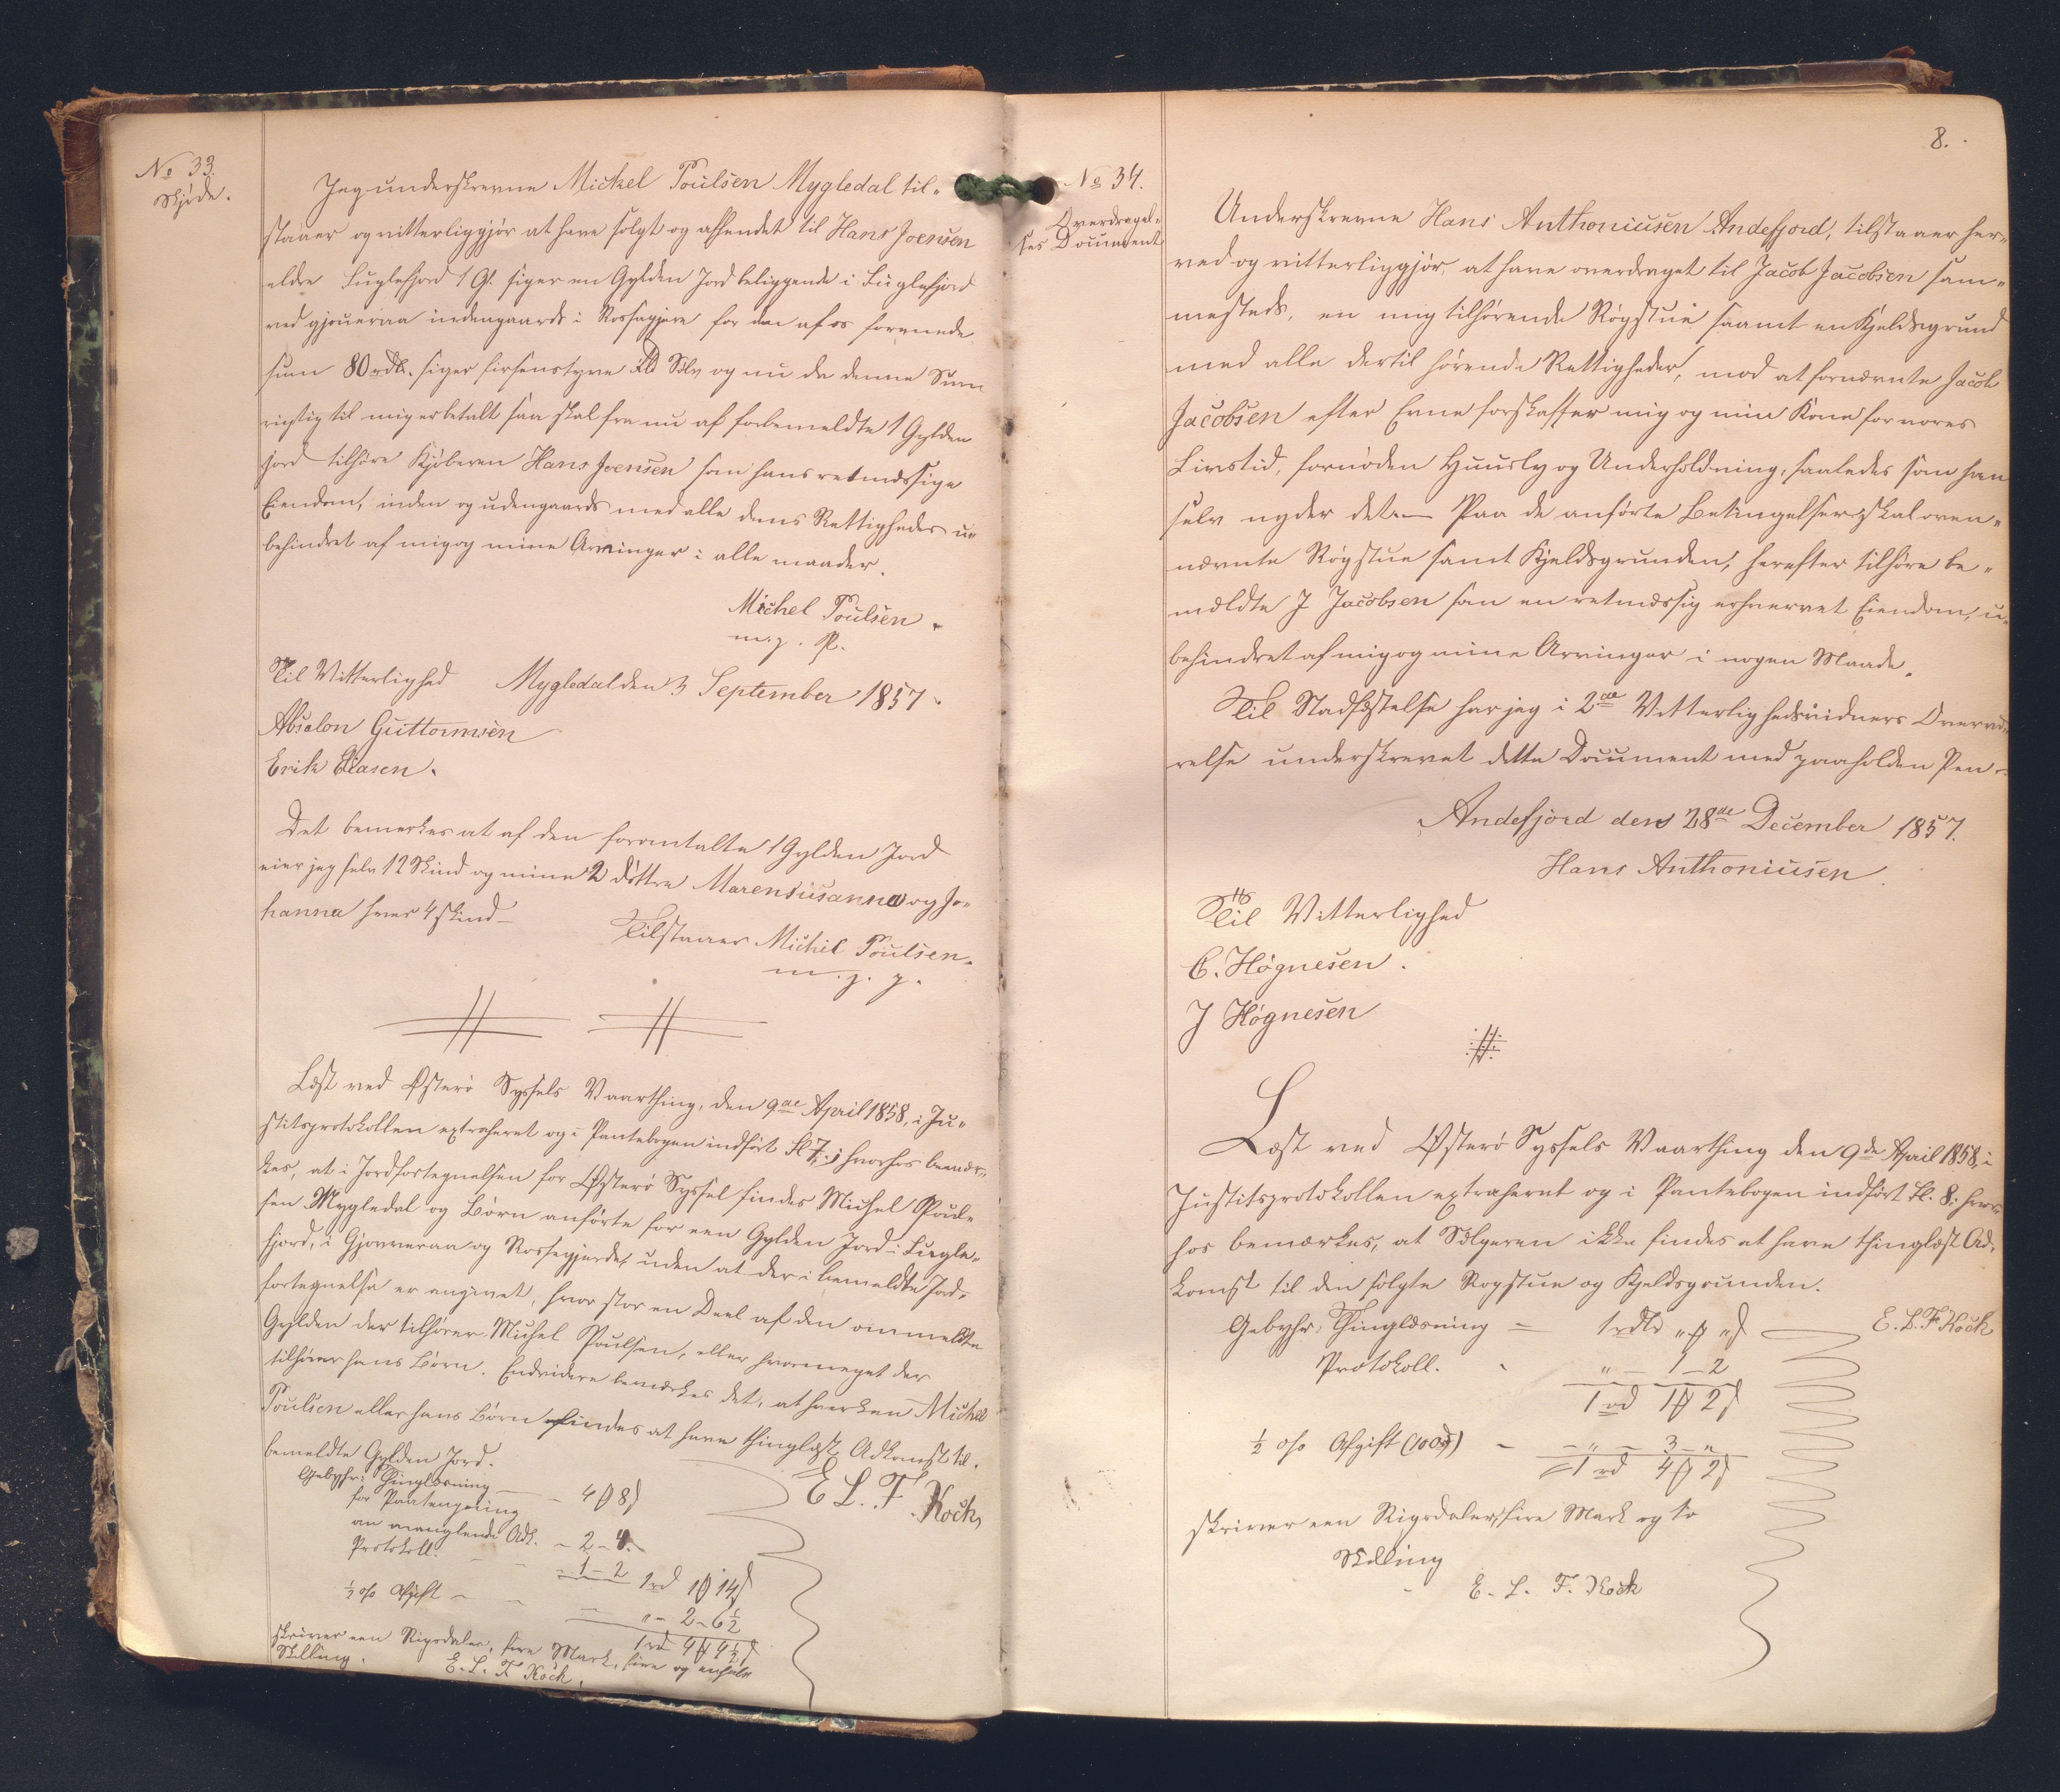 No 33.
Skjøde.
Jeg underskrevne Mickel Poulsen Mygledal til-
staaer og vitterliggjør at have solgt og afhendet til Hans Joensen
eldre Fuglefjord 1 Gl. siger en Gylden Jord beliggende i Fuglefjord
ved gjoueraa indengaards i Rossagjære for den af os forenede
sum 80 rdlr. siger firsenstyve rd Sølv og nu da denne Sum
rigtig til mig er betalt saa skal fra nu af forbemeldte 1 Gylden
jord tilhøre Kjøberen Hans Joensen som hans retmæssige
Eiendom, inden og udengaards med alle dens Rettigheder u-
behindret af mig og mine Arvinger i alle maader.
Michel Poulsen
m. p. P.
Til Vitterlighed Mygledal den 3 September 1857
Absalon Guttormsen
Erik Eliasen.
Det bemerkes at af den foromtalte 1 Gylden Jord
eier jeg selv 12 Skind og mine 2 døttre Marensusanna og Jo-
hanna hver 4 skind
Tilstaaer Michel Poulsen
m. p. p.
Læst ved Østerø Syssels Vaarthing, den 9de April 1858, i Ju-
stitsprotokollen extraheret og i Pantebogen indført Fl 7; hvorhos bemær-
kes, at i Jordfortegnelsen for Østerø Syssel findes Michel Poul-
sen Mygledal og Børn anførte for een Gylden Jord i Fugle-
fjord, i Gjouveraa og Rossegjerdet uden at der i bemeldte Jord-
fortegnelse er angivet, hvor stor en Deel af den ommeldte
Gylden der tilhører Michel Poulsen, eller hvormeget der
tilhører hans Børn. Endvidere bemærkes det, at hverken Michel
Poulsen eller hans Børn findes at have thinglæst Adkomst til
bemeldte Gylden Jord.
E. L. F. Koch
Gebyhr: Thinglæsning - 4 ℳ 8 β
for Paategning
om manglende Adk. - 2 - 4.
Protokoll. - 1 - 2 1 rd 1 ℳ 14 β
½ o/o Afgift - „ - 2 - 6½
1 rd 4 ℳ 4½ β
skriver een Rigsdaler, fire Mark, fire og enhalv
Skilling.
E. L. F. Koch.
8.
No 34.
Overdragel-
ses Document
Underskrevne Hans Anthoniusen Andefjord, tilstaaer her-
ved og vitterliggjør, at have overdraget til Jacob Jacobsen sam-
mesteds, en mig tilhørende Røgstue saamt en Kjeldsgrund
med alle dertil hørende Rettigheder, mod at fornævnte Jacob
Jacobsen efter Evne forskaffer mig og min Kone for vores
Livstid, fornøden Huusly og Underholdning, saaledes som han
selv nyder det. — Paa de anførte Betingelser skal oven-
nævnte Røgstue samt Kjeldsgrunden, herefter tilhøre be-
mældte J Jacobsen som en retmæssig erhvervet Eiendom, u-
behindret af mig og mine Arvinger i nogen Maade.
Til Stadfæstelse har jeg i 2de Vitterlighedsvidners Overvæ-
relse underskrevet dette Document med paaholden Pen -
Andefjord den 28de December 1857.
Hans Anthoniusen.
Til Vitterlighed
C. Høgnesen.
J Høgnesen
Læst ved Østerø Syssels Vaarthing den 9de April 1858, i
Justitsprotokollen extraheret og i Pantebogen indført Fl: 8; hvor-
hos bemærkes, at Sælgeren ikke findes at have thinglæst Ad-
komst til den solgte Rogstue og Kjeldsgrunden.
E. L. F Koch
Gebyhr: Thinglæsning - 1 rdlr „ ℳ „ β
Protokoll. „ - 1 - 2
1 rd 1 ℳ 2 β
½ o/o Afgift (100 β) - „ - 3 - „
1 rd 4 ℳ 2 β
skriver een Rigsdaler, fire Mark og to
Skilling
E. L. F. Koch